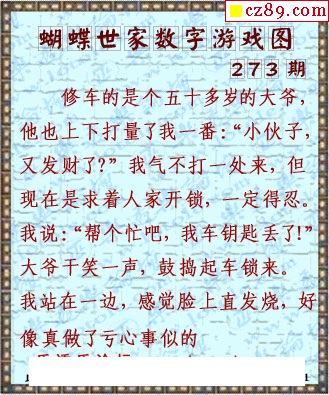 cz89.com
蝴蝶世家数字游戏图
273期
修车的是个五十多岁的大爷，
他也上下打量了我一番：“小伙子，
又发财了？”我气不打一处来，但
现在是求着人家开锁，一定得忍。
我说：“帮个忙吧，我车钥匙丢了！”
大爷干笑一声，鼓捣起车锁来。
我站在一边，感觉脸上直发烧，好
像真做了亏心事似的